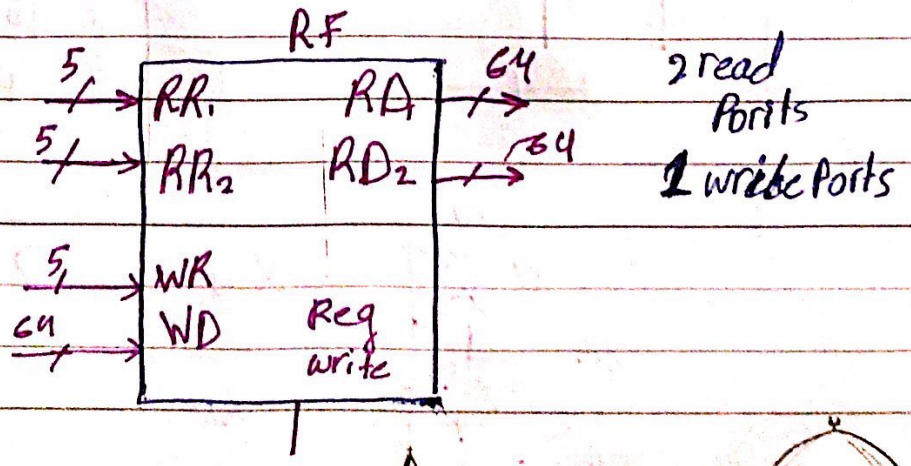 RF
5 RR₁ RD₁ 64 2 read
Porits
5 RR₂ RD₂ 64
1 write Ports
5 WR
64 WD Reg
write